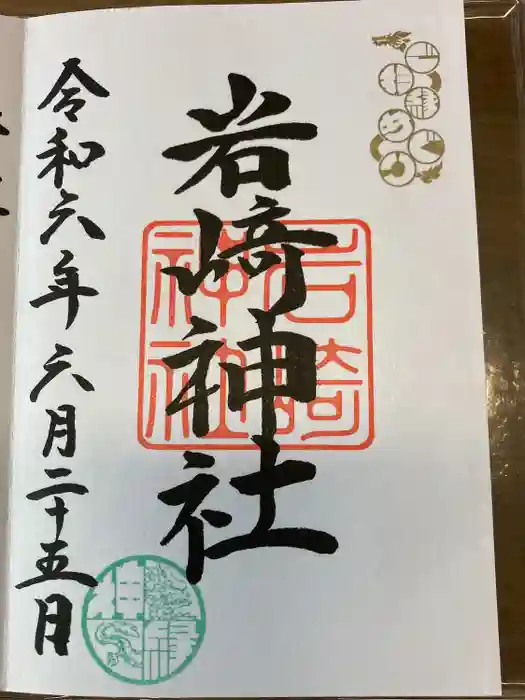 岩﨑神社
岩崎
神社
令和六年六月二十五日
神
縁